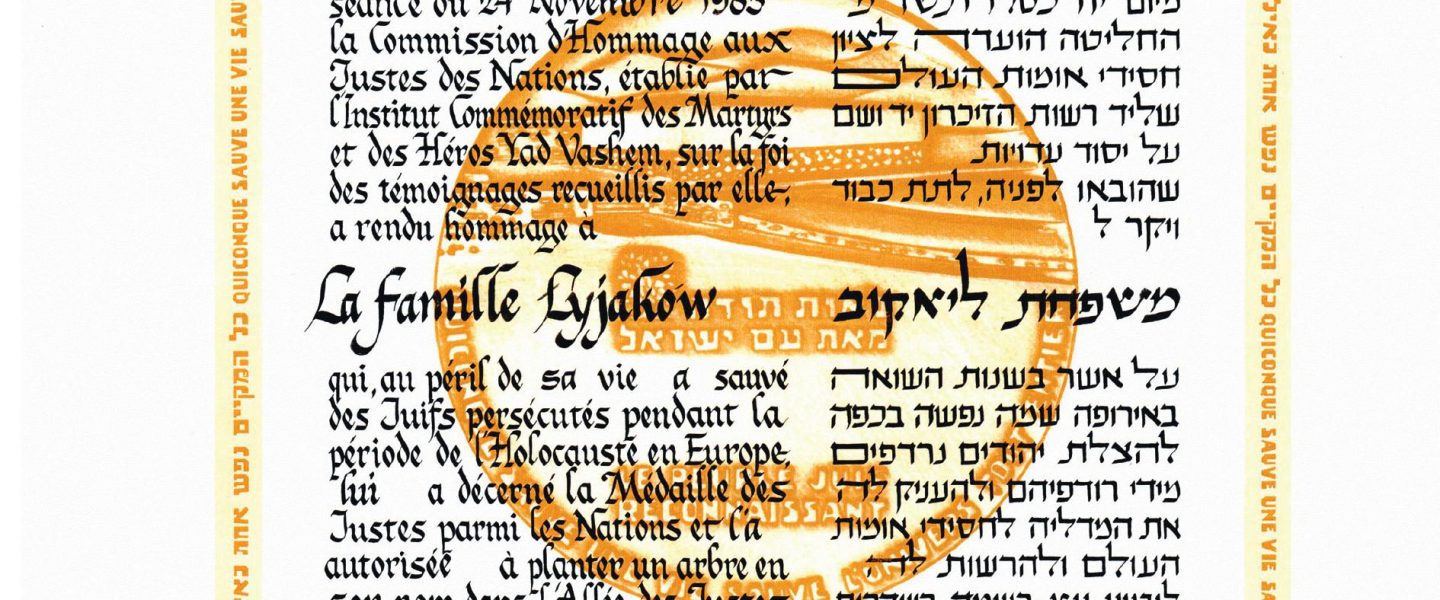 séance du 24 Novembre 1983
la Commission d'Hommage aux
Justes des Nations, établie par
l'Institut Commémoratif des Martyrs
et des Héros Yad Vashem, sur la foi
des témoignages recueillis par elle,
a rendu hommage à
La famille Lyjakow
qui, au péril de sa vie a sauvé
des Juifs persécutés pendant la
période de l'Holocauste en Europe,
lui a décerné la Médaille des
Justes parmi les Nations et l'a
autorisée à planter un arbre en
son nom dans l'Allée des Justes
מיום יח כסלו
החליטה הועדה לציון
חסידי אומות העולם
שליד רשות הזיכרון יד ושם
על יסוד עדויות
שהובאו לפניה, לתת כבוד
ויקר ל
משפחת ליאקוב
על אשר בשנות השואה
באירופה שמה נפשה בכפה
להצלת יהודים נרדפים
מידי רודפיהם ולהעניק לה
את המדליה לחסידי אומות
העולם ולהרשות לה
מאת עם ישראל
LE PEUPLE JUIF
RECONNAISSANT
SAUVE L'UNIVERS TOUT
כל המקיים נפש אחת כאי QUICONQUE SAUVE UNE VIE SAU
כל המקיים נפש אחת כאיל QUICONQUE SAUVE UNE VIE SA